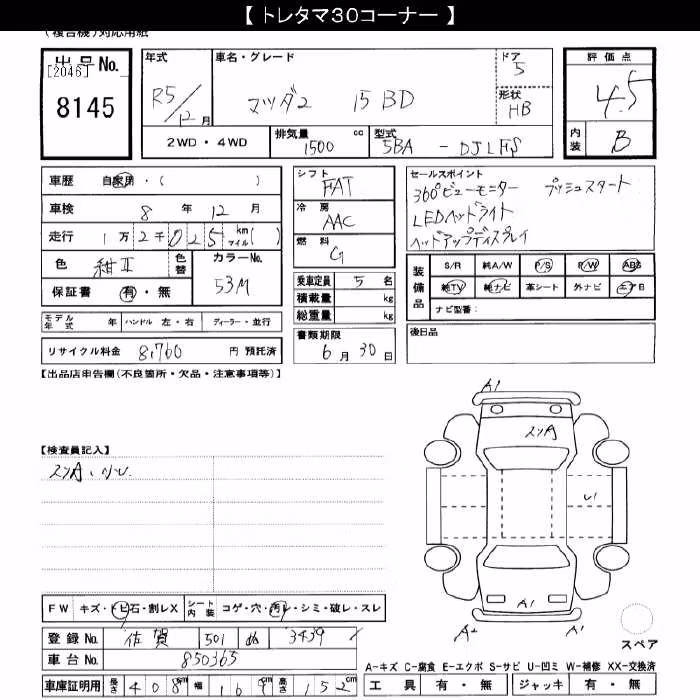 【 トレタマ30コーナー 】
(複合機)対応用紙
出品No.
[2046]
8145
年式
R5/12月
車名・グレード
マツダ2 15BD
ドア
5
形状
HB
評価点
4.5
内装
B
2WD・4WD
排気量
1500 cc
型式
5BA - DJLFS
車歴 自家用・( )
車検 8年 12月
走行 1万2千025 km マイル( )
色 紺II
色替
カラーNo.
53M
保証書 有・無
モデル年式 年 ハンドル 左・右 ディーラー・並行
リサイクル料金 8,760 円 預託済
シフト
FAT
冷房
AAC
燃料
G
乗車定員 5 名
積載量 kg
総重量 kg
書類期限
6月30日
セールスポイント
360°ビューモニター プッシュスタート
LEDヘッドライト
ヘッドアップディスプレイ
装備品
S/R 純A/W P/S P/W ABS
純TV 純ナビ 革シート 外ナビ エアB
ナビ型番:
後日品
【出品店申告欄(不良箇所・欠品・注意事項等)】
【検査員記入】
スリA、小U
A1
スリA
U1
A1
A2
A1
スペア
FW キズ・トビ石・割レX
シート内装 コゲ・穴・汚レ・シミ・破レ・スレ
登録No. 佐賀 501 ぬ 3439
車台No. 850365
車庫証明用 長さ 408cm 幅 169cm 高さ 152cm
A-キズ C-腐食 E-エクボ S-サビ U-凹ミ W-補修 XX-交換済
工具 有・無 ジャッキ 有・無